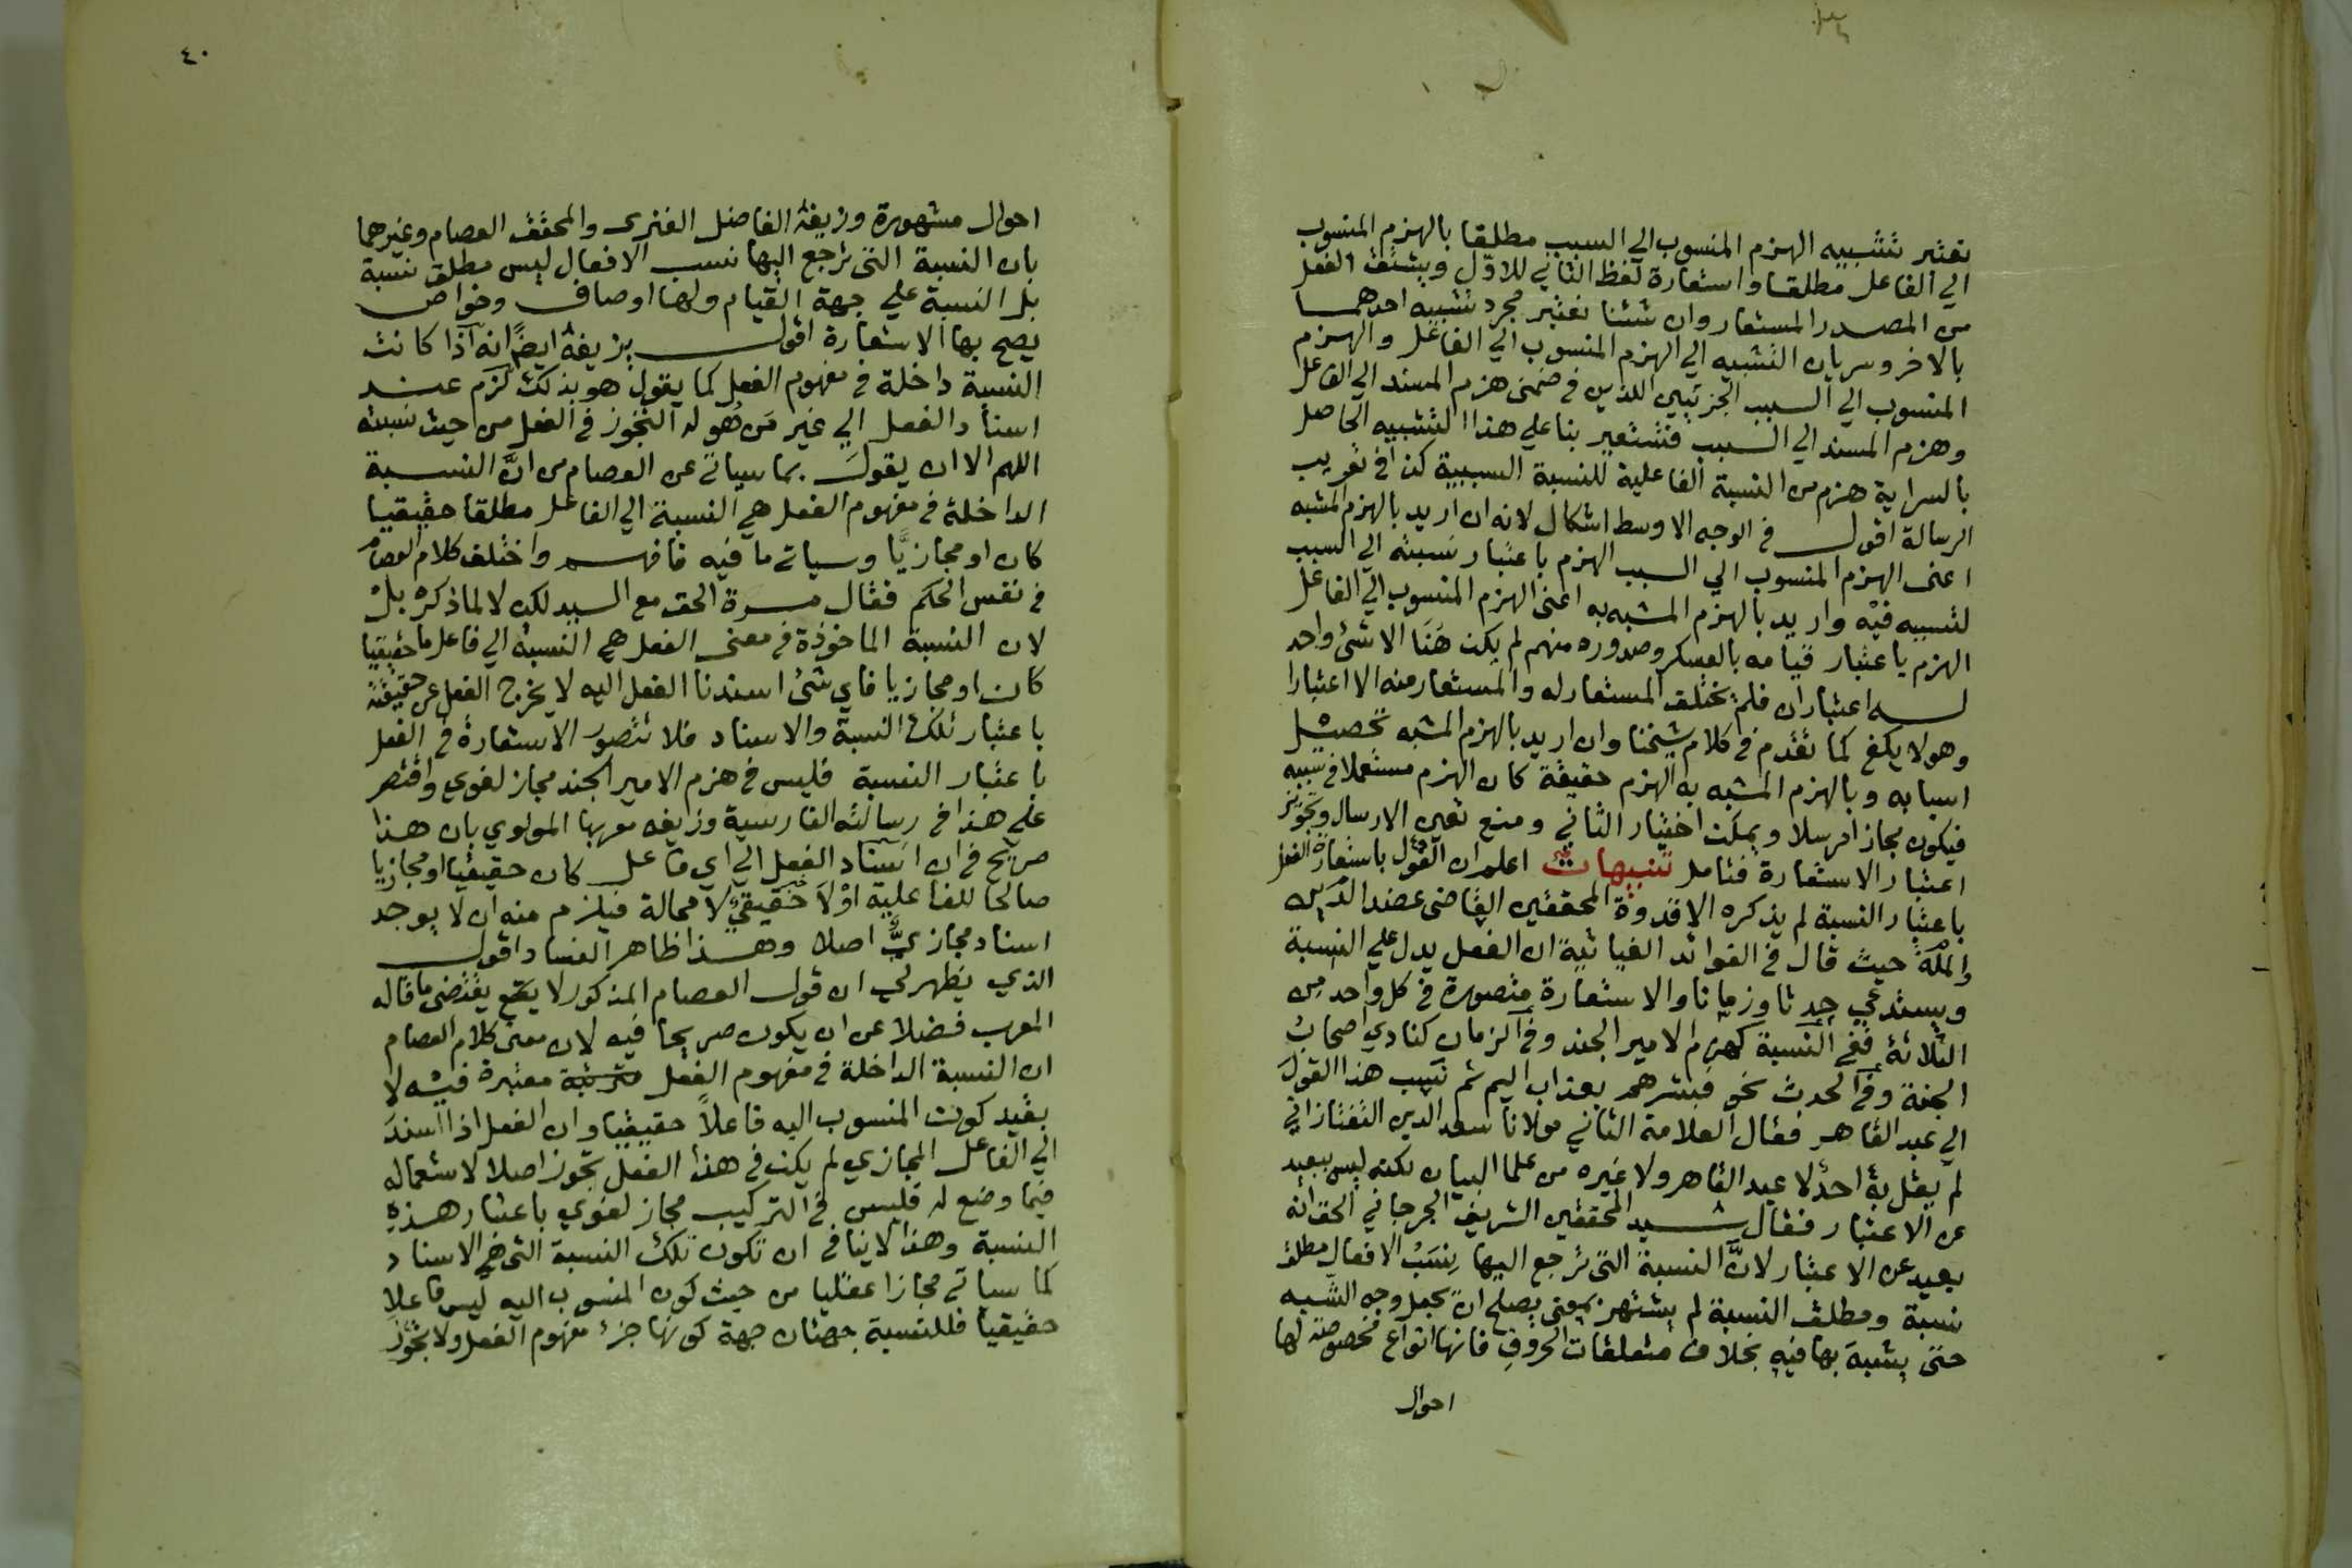 نعتبر تشبيه الهزم المنسوب الي السبب مطلقا بالهزم المنسوب
الي الفاعل مطلقا واستعارة لفظ الثاني للاوّل ويشتق الفعل
من المصدر المستعار وان شئنا نعتبر مجرد تشبيه احدهما
بالاخر وسريان التشبيه الي الهزم المنسوب الي الفاعل والهزم
المنسوب الي السبب الجزئيين اللذين في ضمني هزم المسند الي الفاعل
وهزم المسند الي السبب فنستعير بنا علي هذا التشبيه الحاصل
بالسراية هزم من النسبة الفاعلية للنسبة السببية كذا في تعريب
الرسالة اقول في الوجه الاوسط اشكال لانه ان اريد بالهزم المشبه
اعني الهزم المنسوب الي السبب الهزم باعتبار نسبته الي السبب
لتسببه فيه واريد بالهزم المشبه به اعني الهزم المنسوب الي الفاعل
الهزم باعتبار قيامه بالعسكر وصدوره منهم لم يكن هَنَا الا شئ واحد
له اعتباران فلم يختلف المستعار له والمستعار منه الا اعتبارا
وهو لا يكفي كما تقدم في كلام شيخنا وان اريد بالهزم المشبه تحصيل
اسبابه وبالهزم المشبه به الهزم حقيقة كان الهزم مستعملا في سببه
فيكون مجازا مرسلا ويمكن اختيار الثاني ومنع تعين الارسال وتجويز
اعتبار الاستعارة فتامل تنبيهات اعلم ان القول باستعارة الفعل
باعتبار النسبة لم يذكره الا قدوة المحققين القاضي عضد الدين
والملة حيث قال في الفوائد الغياثية ان الفعل يدل علي النسبة
ويستدعي حدثا وزمانا والاستعارة متصورة في كل واحد من
الثلاثة ففي النسبة كهزم الامير الجند وفي الزمان كنادي اصحاب
الجنة وفي الحدث نحو فبشرهم بعذاب اليم ثم نسب هذا القول
الي عبد القاهر فقال العلامة الثاني مولانا سعد الدين التفتازاني
لم يقل به احد لا عبد القاهر ولا غيره من علما البيان لكنه ليس ببعيد
عن الاعتبار فقال سيد المحققين الشريف الجرجاني الحق انه
بعيد عن الاعتبار لانَّ النسبة التي ترجع اليها نِسَبُ الافعال مطلق
نسبة ومطلق النسبة لم يشتهر بمعني يصلح ان يجعل وجه الشبه
حتي يشبه بها فيه بخلاف متعلقات الحروف فانها انواع مخصوصة لها
احوال
٤٠
احوال مشهورة وزيفه الفاضل الفنري والمحقق العصام وغيرهما
بان النسبة التي ترجع اليها نسب الافعال ليس مطلق نسبة
بل النسبة علي جهة القيام ولها اوصاف وخواص
يصح بها الاستعارة اقول يزيفه ايضًا انه اذا كانت
النسبة داخلة في مفهوم الفعل كما يقول هو بذلك لزم عند
اسناد الفعل الي غير مَن هُو له التجوز في الفعل من حيث نسبته
اللهم الا ان يقولَ بما سياتي عن العصام من انَّ النسبة
الداخلة في مفهوم الفعل هي النسبة الي الفاعل مطلقا حقيقيا
كان او مجازيًّا وسياتي ما فيه فافهم واختلف كلام العصام
في نقس الحكم فقال مرة الحق مع السيد لكن لا لما ذكره بل
لان النسبة الماخوذة في معني الفعل هي النسبة الي فاعل ما حقيقيا
كان او مجازيا فاي شئ اسندنا الفعل اليه لا يخرج الفعل عن حقيقته
باعتبار تلك النسبة والاسناد فلا تتصور الاستعارة في الفعل
باعتبار النسبة فليس في هزم الامير الجند مجاز لغوي واقتصر
علي هذا في رسالته الفارسية وزايفه معربها المولوي بان هذا
صريح في ان اسناد الفعل الي اي فاعل كان حقيقيا او مجازيا
صالحا للفاعلية اوْلَا حقيقيٌّ لا محالة فيلزم منه ان لا يوجد
اسناد مجازيٌّ اصلا وهذا ظاهر الفساد اقول
الذي يظهر لي ان قول العصام المذكور لا يقتضي ما قاله
المعرب فضلا عن ان يكون صريحا فيه لان معني كلام العصام
ان النسبة الداخلة في مفهوم الفعل معتبرة فيه لا
بقيد كون المنسوب اليه فاعلاً حقيقيا وان الفعل اذا اسندَ
الي الفاعل المجازي لم يكن في هذا الفعل تجوز اصلا لاستعماله
فيما وضع له فليس في التركيب مجاز لغوي باعتبار هذه
النسبة وهذا لا ينافي ان تكون تلك النسبة التي هي الاسناد
كما سياتي مجازا عقليا من حيث كون المنسوب اليه ليس فاعلا
حقيقيا فللنسبة جهتان جهة كونها جزء مفهوم الفعل ولا تجوّز